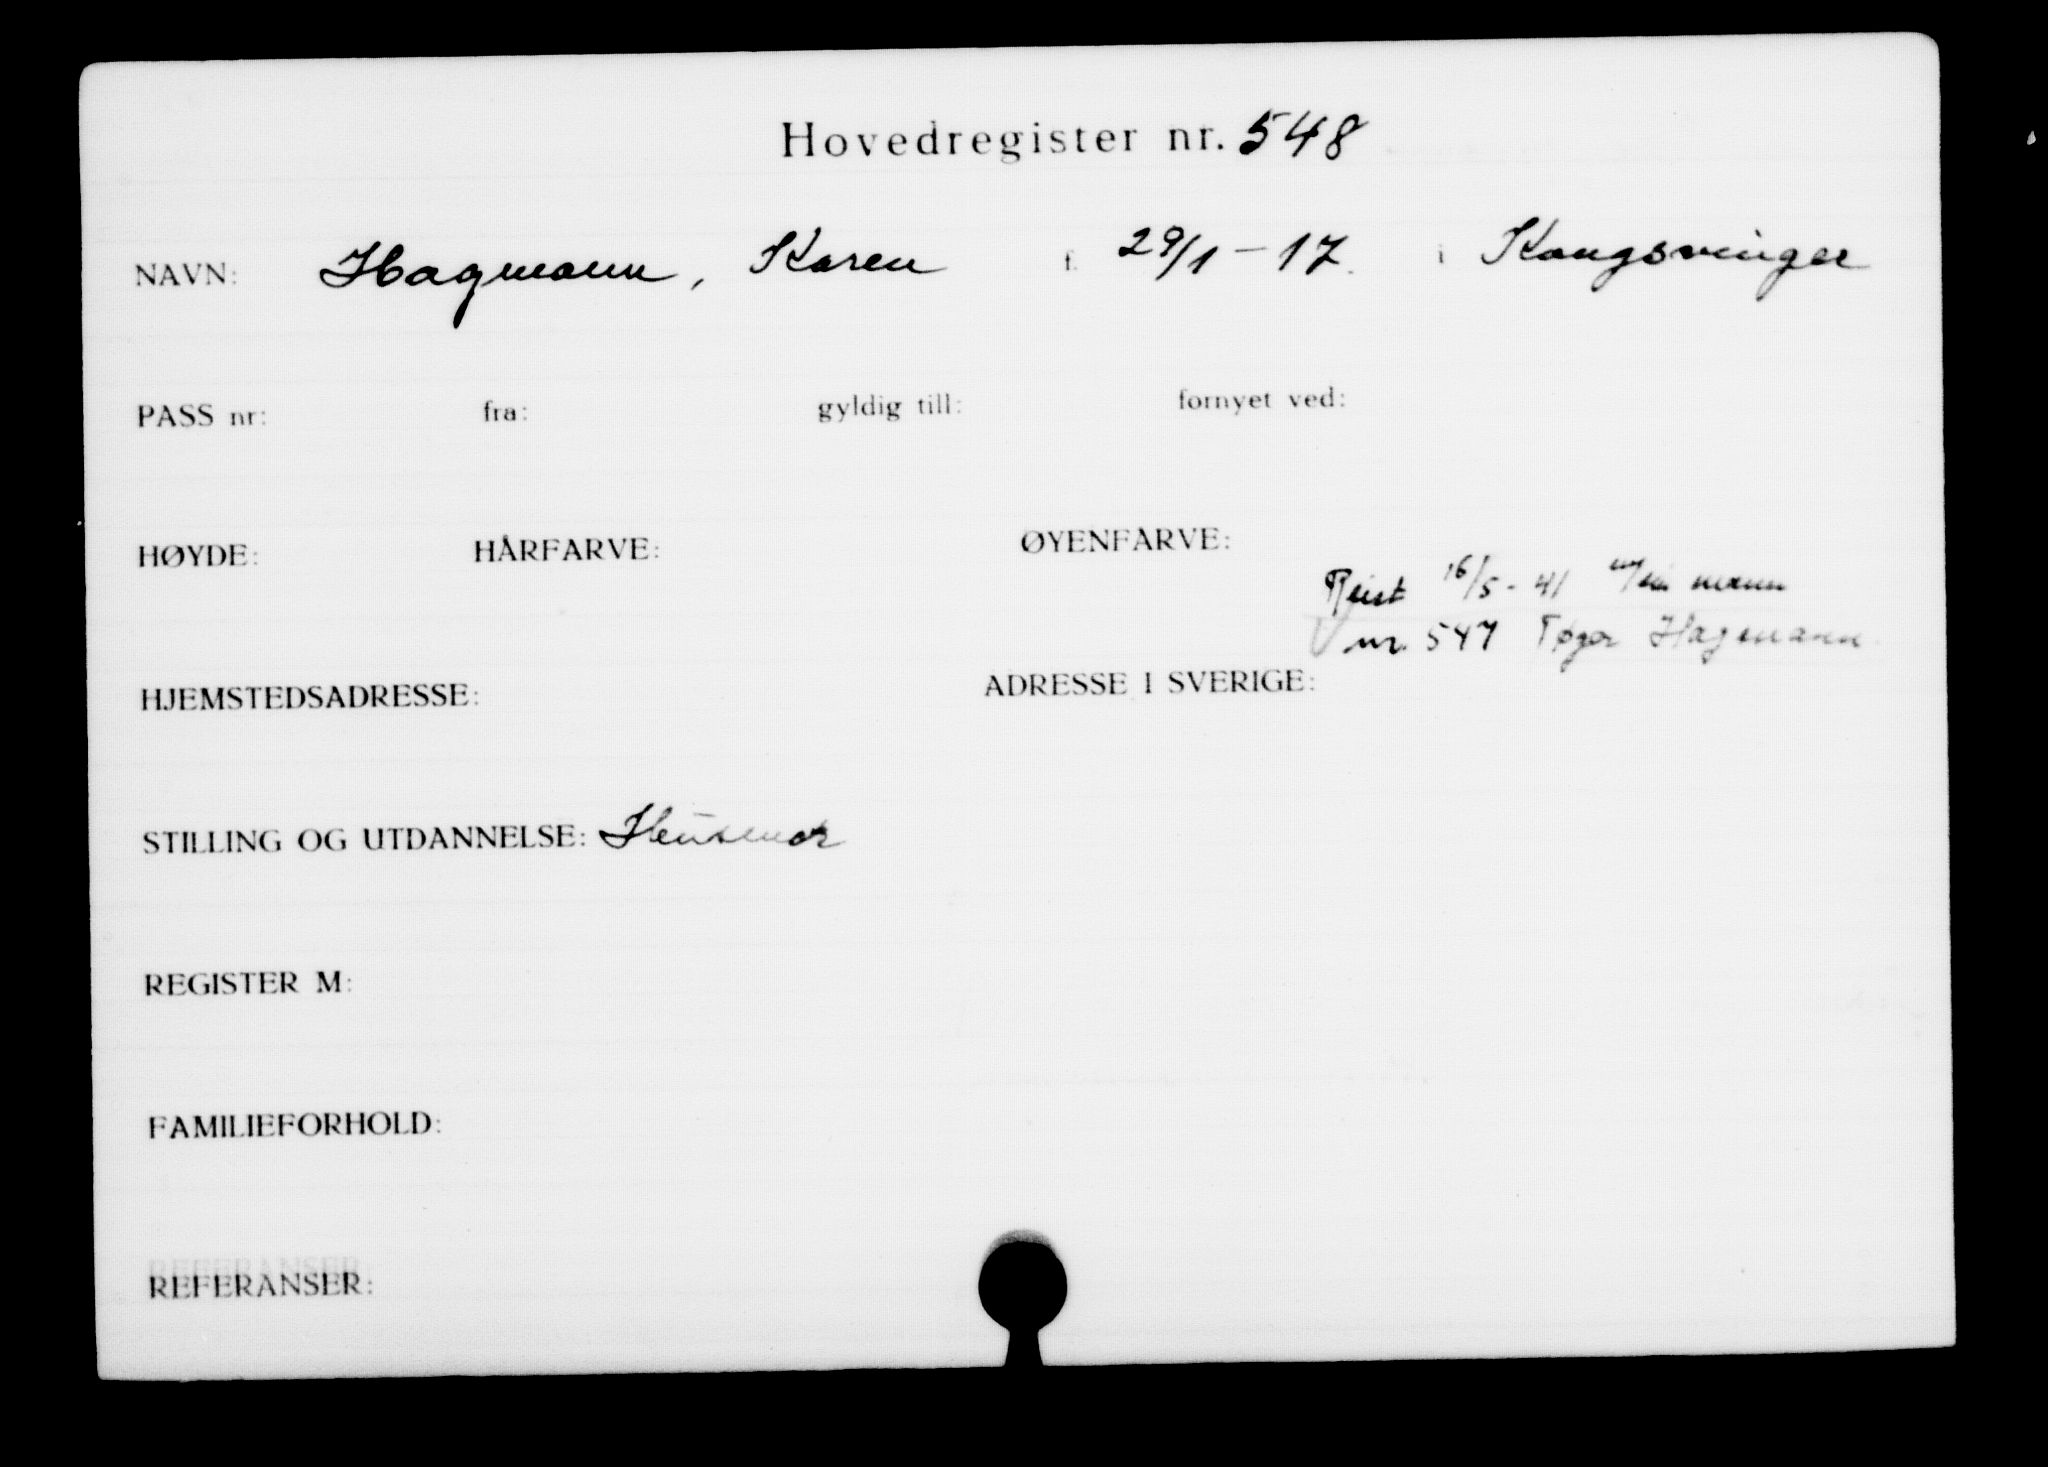 Hovedregister nr. 548
NAVN: Hagmann, Karen f. 29/1-17. i Kongsvinger
PASS nr: fra: gyldig till: fornyet ved:
HØYDE: HÅRFARVE: ØYENFARVE:
Reist 16/5-41 m/sin mann
nr. 547 Tøger Hagmann
HJEMSTEDSADRESSE: ADRESSE I SVERIGE:
STILLING OG UTDANNELSE: Husmor
REGISTER M:
FAMILIEFORHOLD:
REFERANSER: